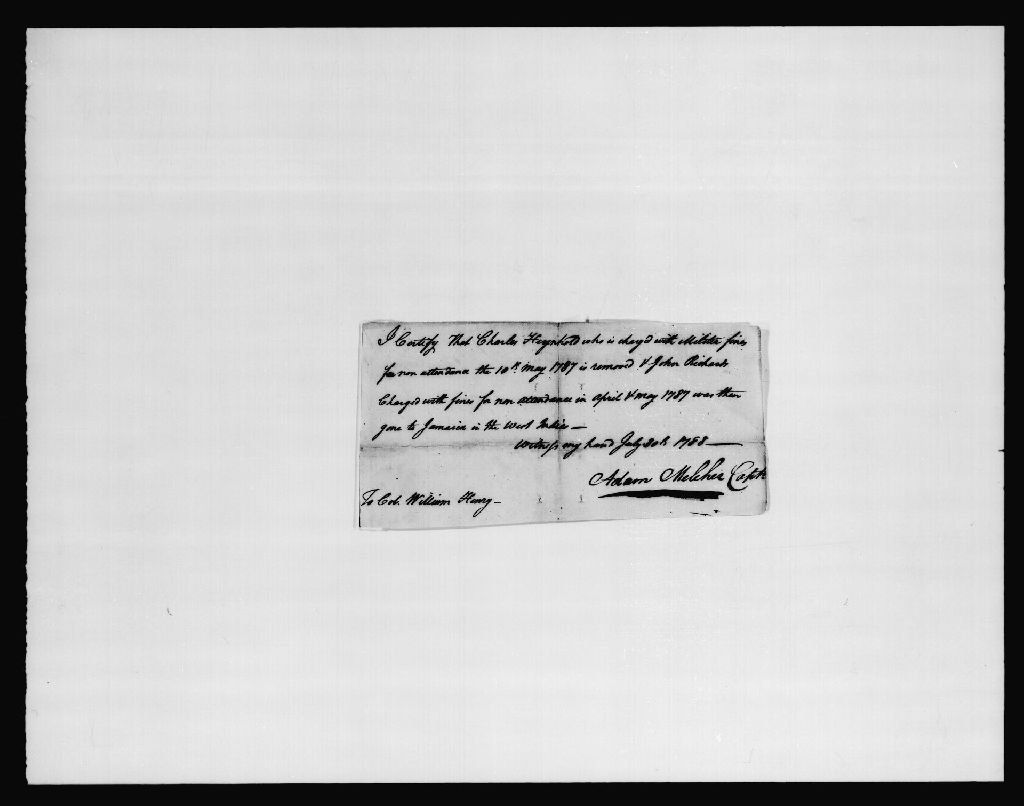 I Certify that Charles Heynhold who is charg'd with Militia fines
for non attendance the 10th. May 1787 is removed & John Richards
Charged with fines for non attendance in April & May 1787 was then
gone to Jamaica in the West Indies —
Witness my hand July 30th 1788 —
Adam Melcher Captn
To Col. William Henry —